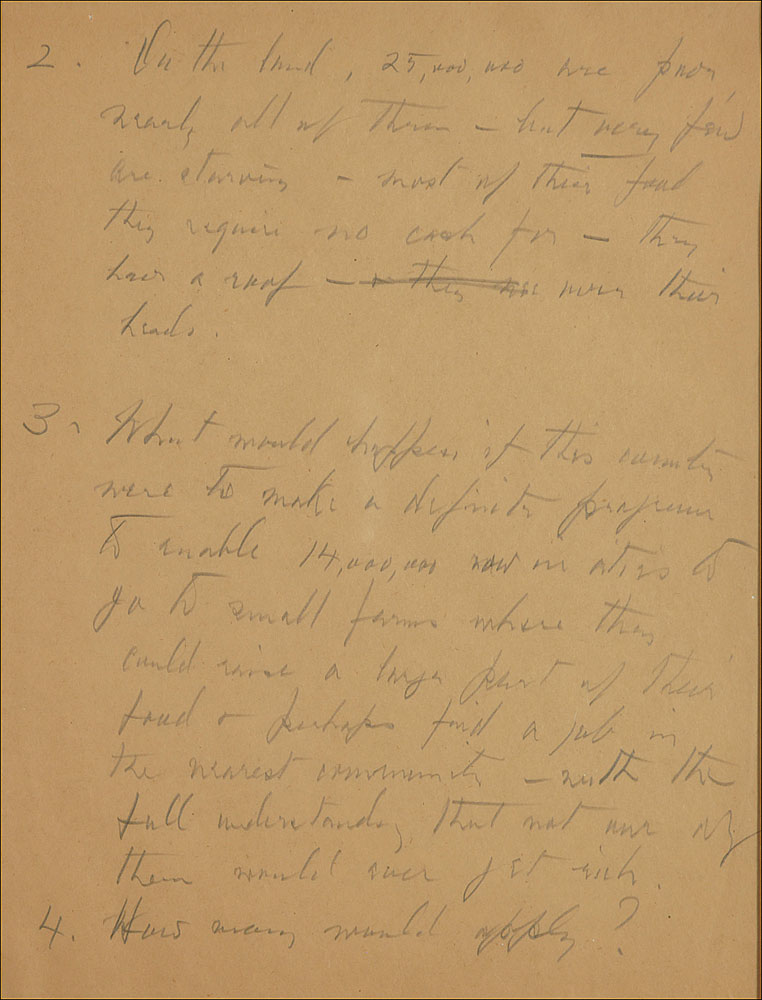 2. On the land, 25,000,000 are poor,
nearly all of them – but very few
are starving – most of their food
they require no cash for – they
have a roof – & they are over their
heads.
3. What would happen if this country
were to make a definite program
to enable 14,000,000 now in cities to
go to small farms where they
could raise a large part of their
food & perhaps find a job in
the nearest community – with the
full understanding that not one of
them would ever get rich.
4. How many would apply?